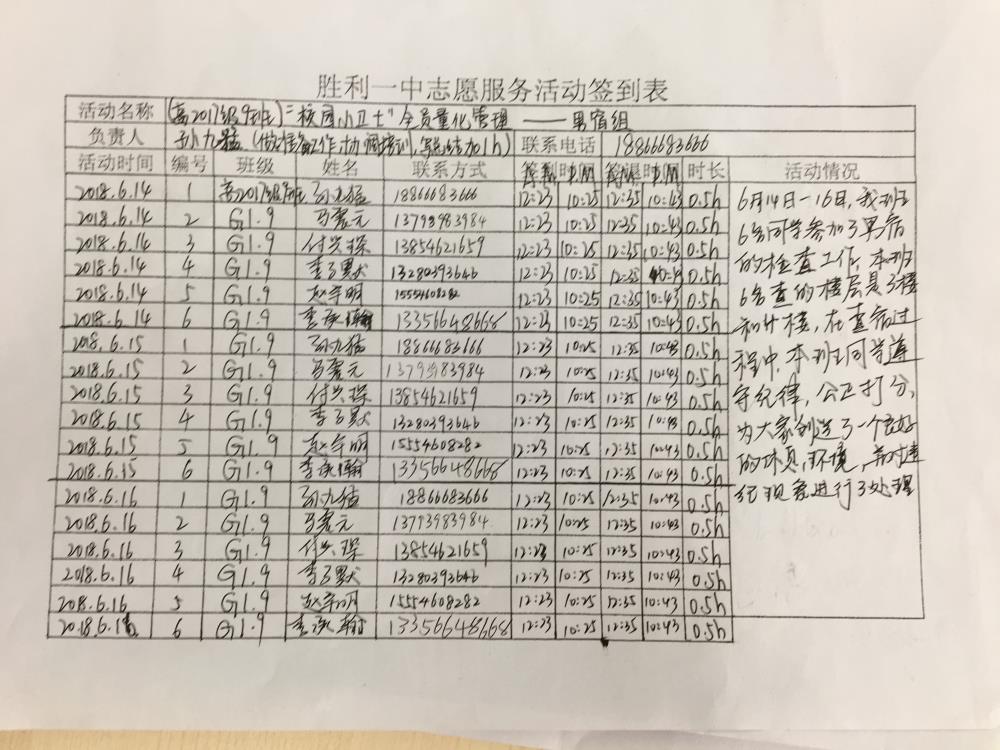 胜利一中志愿服务活动签到表
活动名称 (高2017级9班)"校园小卫士"全员量化管理——男宿组
负责人 孙九猛 (做检查工作,协调培训,写总结加1h) 联系电话 18866683666
活动时间 编号 班级 姓名 联系方式 时长 活动情况
2018.6.14 1 高2017级9班 孙九猛 18866683666 12:23 10:25 12:35 10:43 0.5h
2018.6.14 2 G1.9 元 13793983984 12:23 10:25 12:35 10:43 0.5h
2018.6.14 3 G1.9 付兴琛 13854621659 12:23 10:25 12:35 10:43 0.5h
2018.6.14 4 G1.9 李子默 13280393646 12:23 10:25 12:35 10:43 0.5h
2018.6.14 5 G1.9 赵宇明 15554608282 12:23 10:25 12:35 10:43 0.5h
2018.6.14 6 G1.9 李承翰 13356648668 12:23 10:25 12:35 10:43 0.5h
2018.6.15 1 G1.9 孙九猛 18866683666 12:23 10:25 12:35 10:43 0.5h
2018.6.15 2 G1.9 元 13793983984 12:23 10:25 12:35 10:43 0.5h
2018.6.15 3 G1.9 付兴琛 13854621659 12:23 10:25 12:35 10:43 0.5h
2018.6.15 4 G1.9 李子默 13280393646 12:23 10:25 12:35 10:43 0.5h
2018.6.15 5 G1.9 赵宇明 15554608282 12:23 10:25 12:35 10:43 0.5h
2018.6.15 6 G1.9 李承翰 13356648668 12:23 10:25 12:35 10:43 0.5h
2018.6.16 1 G1.9 孙九猛 18866683666 12:23 10:25 12:35 10:43 0.5h
2018.6.16 2 G1.9 元 13793983984 12:23 10:25 12:35 10:43 0.5h
2018.6.16 3 G1.9 付兴琛 13854621659 12:23 10:25 12:35 10:43 0.5h
2018.6.16 4 G1.9 李子默 13280393646 12:23 10:25 12:35 10:43 0.5h
2018.6.16 5 G1.9 赵宇明 15554608282 12:23 10:25 12:35 10:43 0.5h
2018.6.16 6 G1.9 李承翰 13356648668 12:23 10:25 12:35 10:43 0.5h
6月14日-16日,我班
6名同学参加了男宿
的检查工作,本班
6名查的楼层是3楼
和4楼,在查宿过
程中,本班同学遵
守纪律,公正打分,
为大家创造了一个良好
的休息环境,并对违
纪现象进行了处理